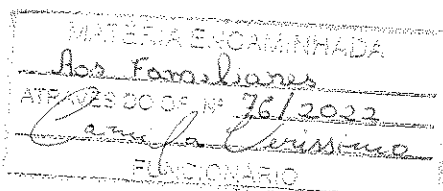 MATÉRIA ENCAMINHADA
Aos Familiares
ATRAVÉS DO OF. Nº 76/2022
Camila Verissimo
FUNCIONÁRIO